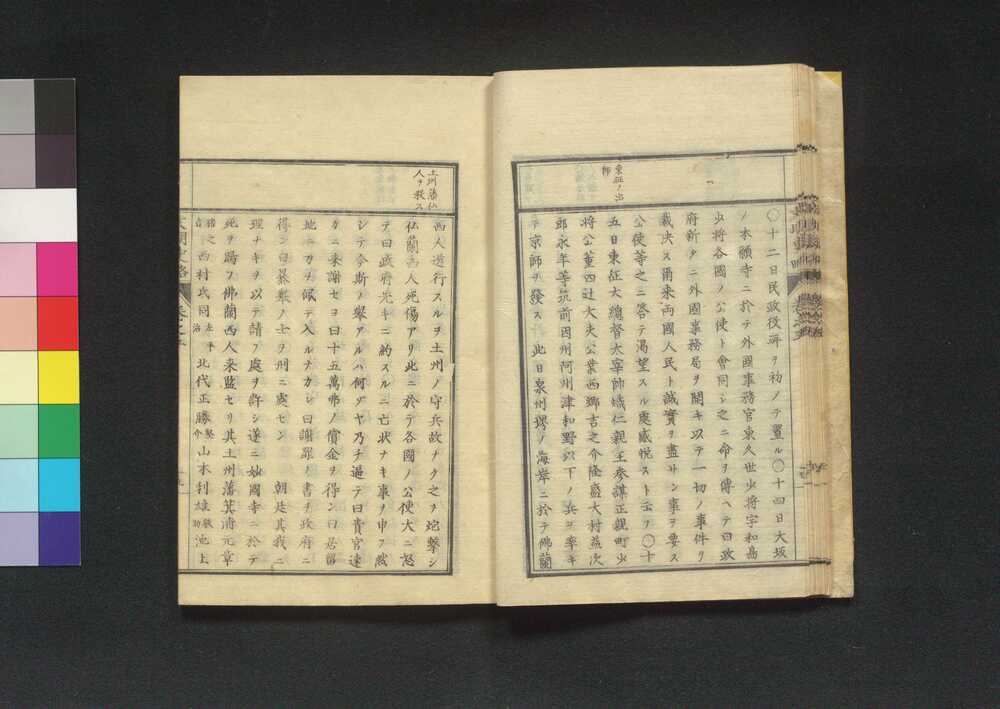 東征ノ出
師
〇十二日民政役所ヲ初ノテ置ル〇十四日大坂
ノ本願寺ニ於テ外國事務官東久世少将宇和島
少将各國ノ公使ト會同シ之ニ命ヲ傳ヘテ曰政
府新タニ外國事務局ヲ開キ以テ一切ノ事件ヲ
裁决ス爾来両國人民ト誠實ヲ盡サン事ヲ要ス
公使等之ニ答テ渇望スル處感悦スト云フ〇十
五日東征大総督太宰帥熾仁親王参謀正親町少
将公董四辻大夫公業西郷吉之介隆盛大村益次
郎永年等筑前因州阿州津和野以下ノ兵ヲ率キ
テ京師ヲ發ス此日泉州堺ノ海岸ニ於テ佛蘭
土州藩仏
人ヲ殺ス
西人遊行スルヲ土州ノ守兵故ナク之ヲ炮撃シ
仏蘭西人死傷アリ此ニ於テ各國ノ公使大ニ怒
テ曰政府先キニ約スルニ亡状ナキ事ヲ申フ然
シテ今斯ノ擧アルハ何ゾヤ乃チ逼テ曰貴官速
カニ来謝セヨ曰十五萬弗ノ償金ヲ得ン曰居留
地ニ刀ヲ佩テ入ルナカレ曰謝罪ノ書ヲ政府ニ
得ン曰暴擧ノ士ヲ刑ニ處セン
朝廷其我ニ
理ナキヲ以テ請フ處ヲ許シ遂ニ妙國寺ニ於テ
死ヲ賜フ佛蘭西人来監セリ其土州藩箕浦元章
猪之吉西村氏同左平治北代正勝堅介山本利雄鐵助池上